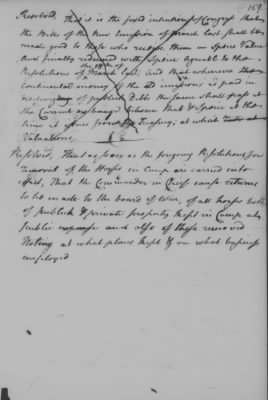 159
Resolved, That it is the fixed intention of Congress that
the Bills of the New Emission of March last shall be
made good to those who receive them in Specie Value
And finally redeemed with Specie agreable to the
Resolutions of March last, And that whenever the
Continental money of the Old emissions is paid in
discharge of publick Debts the same shall pass at
the Current exchange between that & Specie at the
time it goes from the Treasury; at which
Valuation
Resolved, That as soon as the foregoing Resolutions for
removal of the Horses in Camp are carried into
effect, That the Commander in Chief cause returns
to be made to the board of War, of all horses both
of publick & private property kept in Camp at
public expence and also of those removed
Noting at what places kept & on what business
employed